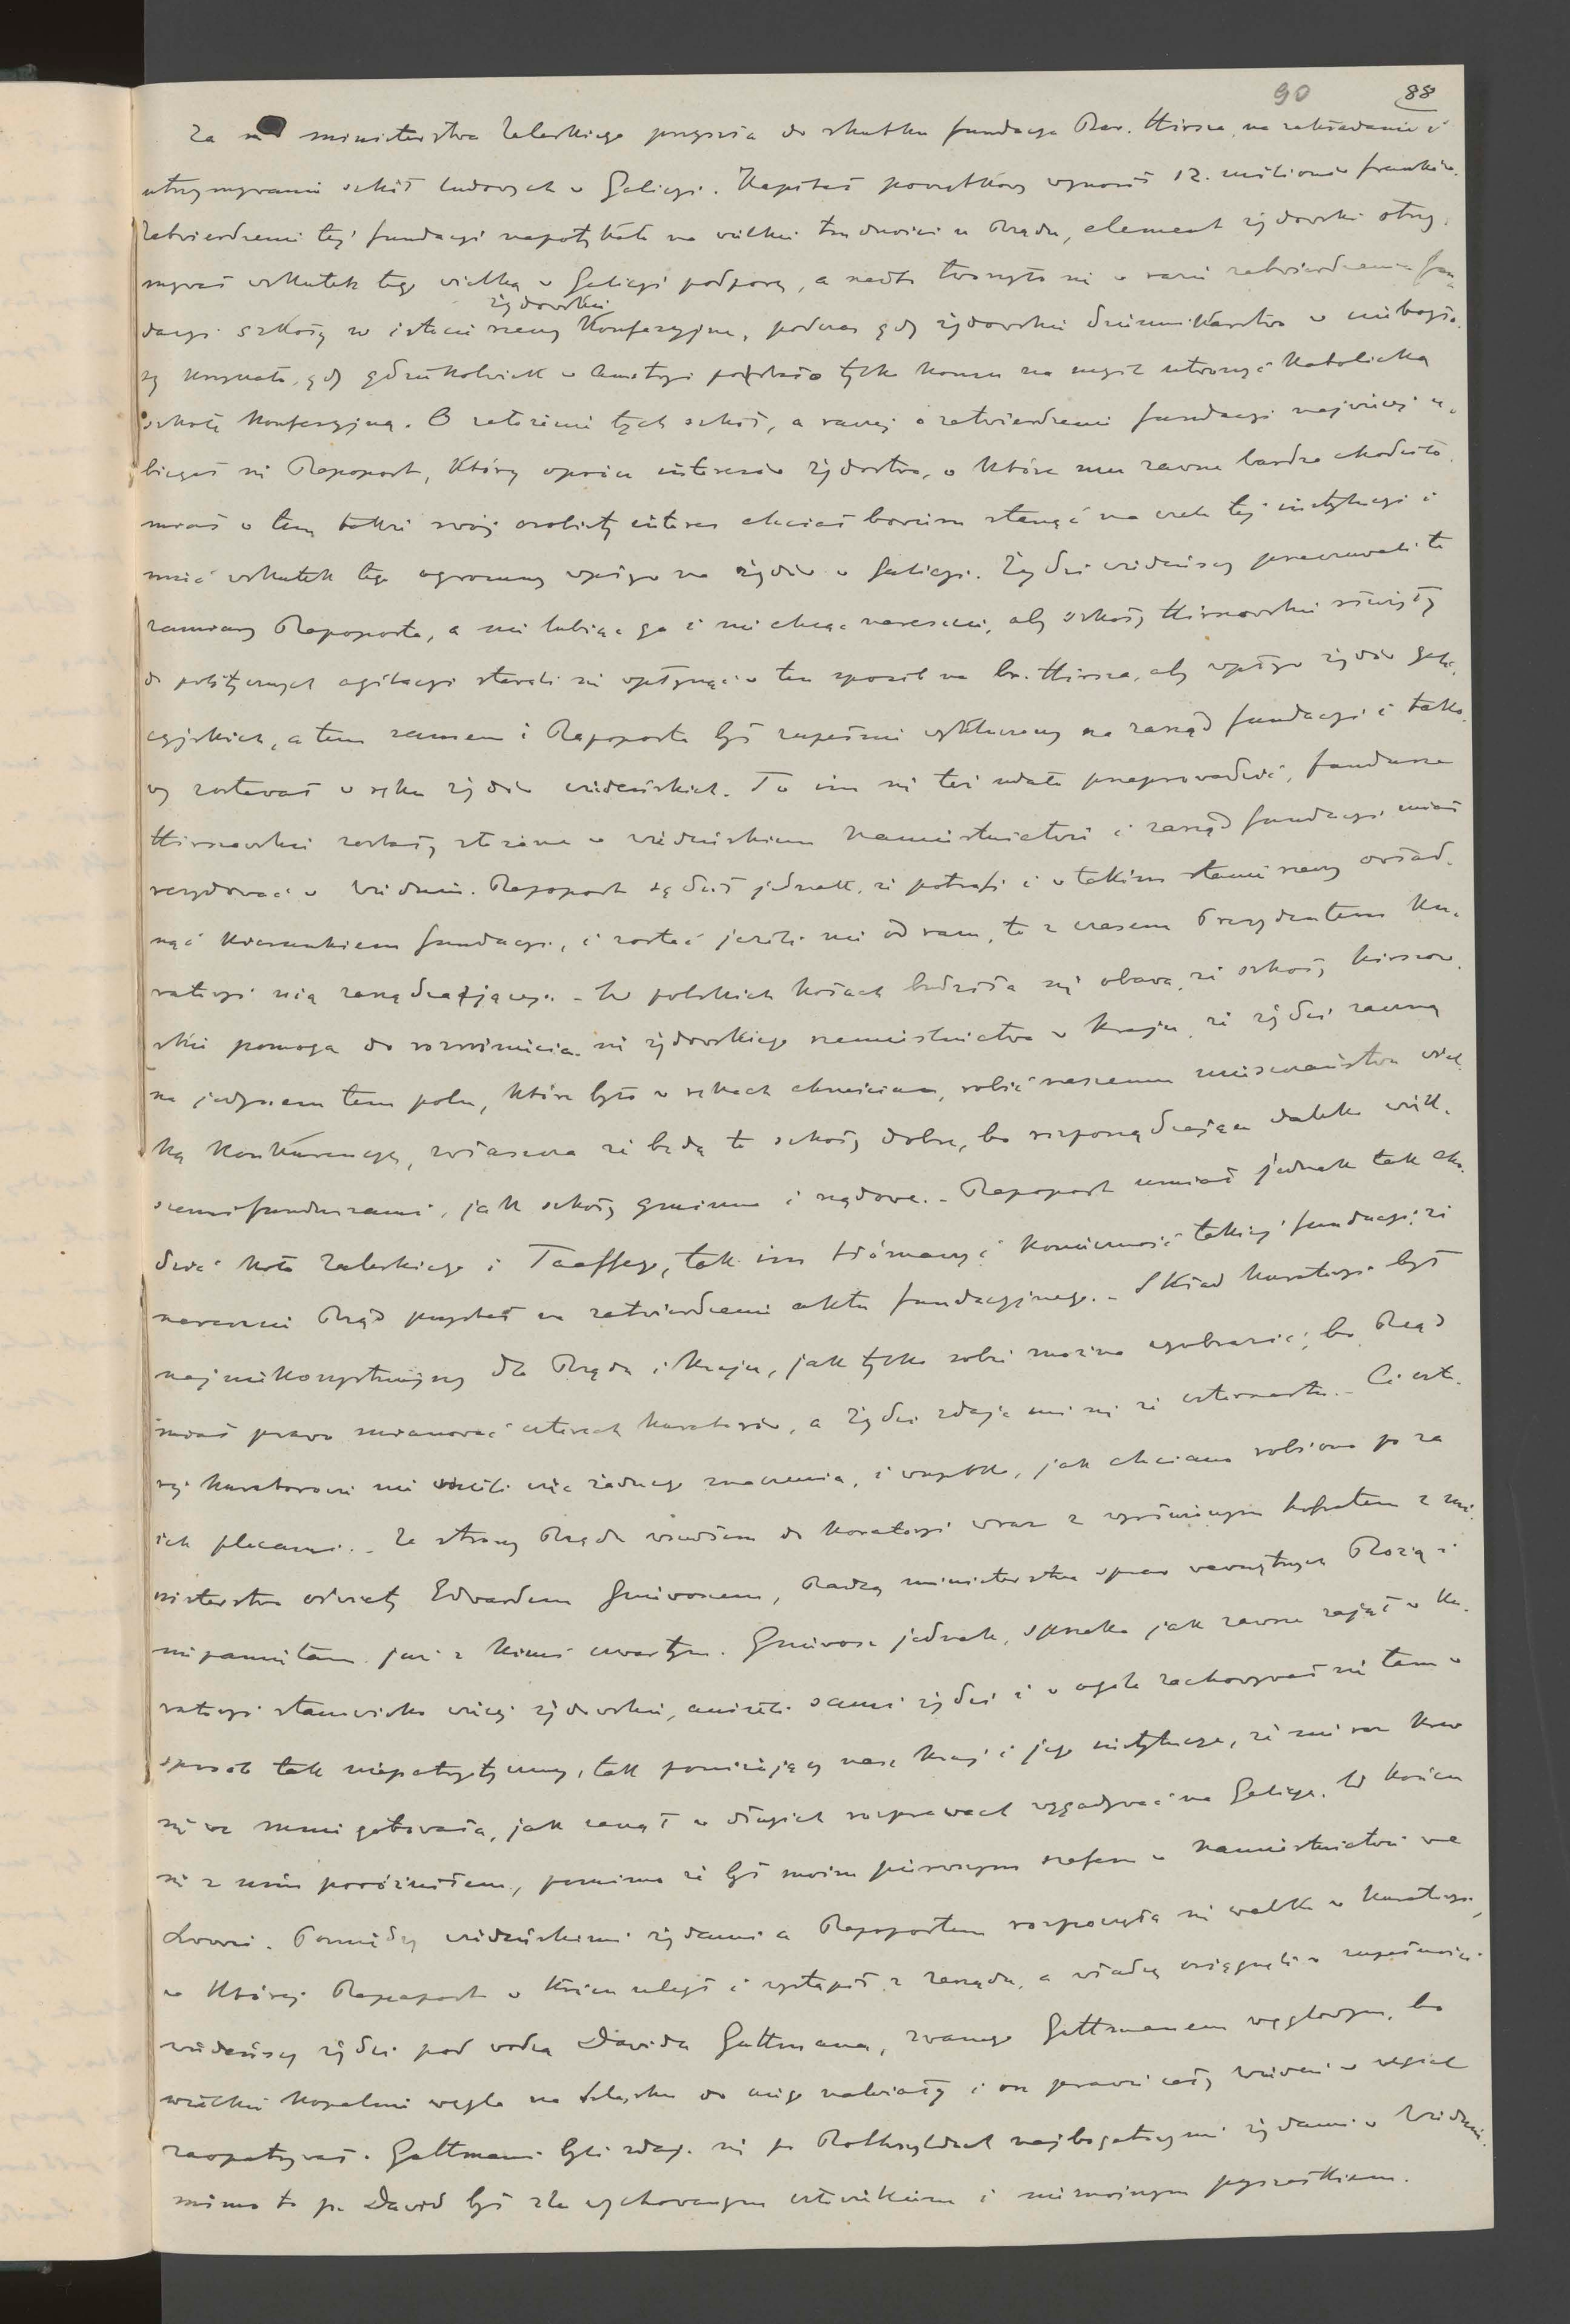 90 88
Za ministerstwa Zaleskiego przyszła do skutku fundacya Bar. Hirsza, na zakładanie i
utrzymywanie szkół ludowych w Galicyi. Kapitał początkowy wynosił 12. milionów franków.
Zatwierdzenie tej fundacyi napotykało na wielkie trudności u Rządu, element żydowski otrzy-
mywał wskutek tego wielką w Galicyi podporę, a nadto tworzyło się w razie zatwierdzenia fun-
dacyi szkoły w istocie rzeczy żydowskie konfesyjne, podczas gdy żydowskie dziennikarstwo w niebogło-
sy krzyczało, gdy gdziekolwiek w Austryi przyszło tylko komu na myśl utworzyć katolicką
szkołę konfesyjną. O założenie tych szkół, a raczej o zatwierdzenie fundacyi najwięcej u-
biegał się Rapoport, który oprócz interesów żydostwa, o które mu zawsze bardzo chodziło,
miał w tem także swój osobisty interes chciał bowiem stanąć na czele tej instytucyi i
mieć wskutek tego ogromny wpływ na żydów w Galicyi. Żydzi wiedeńscy przeczuwali te
zamiary Rapoporta, a nie lubiąc go i nie chcąc nareszcie, aby szkoły Hirszowskie służyły
do politycznych agitacyi starali się wpłynąć w ten sposób na br. Hirsza, aby wpływ żydów gali-
cyjskich, a tem samem i Rapoporta był zupełnie wykluczony na zarząd fundacyi i tako-
wy zostawał w ręku żydów wiedeńskich. To im się też udało przeprowadzić, fundusze
Hirszowskie zostały złożone w wiedeńskiem Namiestnictwie i zarząd fundacyi miał
rezydować w Wiedniu. Rapoport sądził jednak, że potrafi i w takim stanie rzeczy owład-
nąć kierunkiem fundacyi, i zostać jeżeli nie od razu, to z czasem Prezydentem Ku-
ratoryi nią zarządzającej. - W polskich kołach budziła się obawa, że szkoły hirszow-
skie pomogą do rozwinięcia się żydowskiego rzemieślnictwa w kraju, że żydzi zaczną
na jedynem tem polu, które było w rękach chrześcian, robić naszemu mieszczaństwu wiel-
ką konkurencyę, zwłaszcza że będą to szkoły dobre, bo rozporządzające daleko więk-
szemi funduszami, jak szkoły gminne i rządowe. - Rapoport umiał jednak tak cho-
dzić koło Zaleskiego i Taaffego, tak im tłómaczyć konieczność takiej fundacyi, że
nareszcie Rząd przystał na zatwierdzenie aktu fundacyjnego. - Skład kuratoryi był
najniekorzystniejszy dla Rządu i kraju, jak tylko sobie można wyobrazić; bo Rząd
miał prawo mianować czterech kuratorów, a żydzi zdaje mi się że czternastu. - Ci czte-
rej kuratorowie nie mieli więc żadnego znaczenia, i wszystko, jak chciano robiono po za
ich plecami. - Ze strony Rządu wszedłem do kuratoryi wraz z wyśmienitym hofratem z mi-
nisterstwa oświaty Edwardem Gniewoszem, Radcą ministerstwa spraw wewnętrznych Rozią i
nie pamiętam już z kimś czwartym. Gniewosz jednak, jak zawsze zajął w ku-
ratoryi stanowisko więcej żydowskie, aniżeli sami żydzi i w ogóle zachowywał się tam w
sposób tak niepatryotyczny, tak poniżający nasz kraj i jego instytucye, że nie raz krew
się we mnie gotowała, jak zaczął w długich rozprawach wygadywać na Galicyę. W końcu
się z nim poróżniłem, pomimo że był moim pierwszym szefem w Namiestnictwie we
Lwowie. Pomiędzy wiedeńskimi żydami a Rapoportem rozpoczęła się walka w kuratoryi,
w której Rapoport w końcu uległ i wystąpił z zarządu, a władzę osiągnęli w zupełności
wiedeńscy żydzi pod wodzą Dawida Guttmana, zwanego Guttmanem węglowym, bo
wielkie kopalnie węgla na Szląsku do niego należały i on prawie cały Wiedeń w węgiel
zaopatrywał. Guttmani byli zdaje się po Rothszyldach najbogatszymi żydami w Wiedniu,
mimo to p. Dawid był źle wychowanym człowiekiem i nieznośnym pyszałkiem.